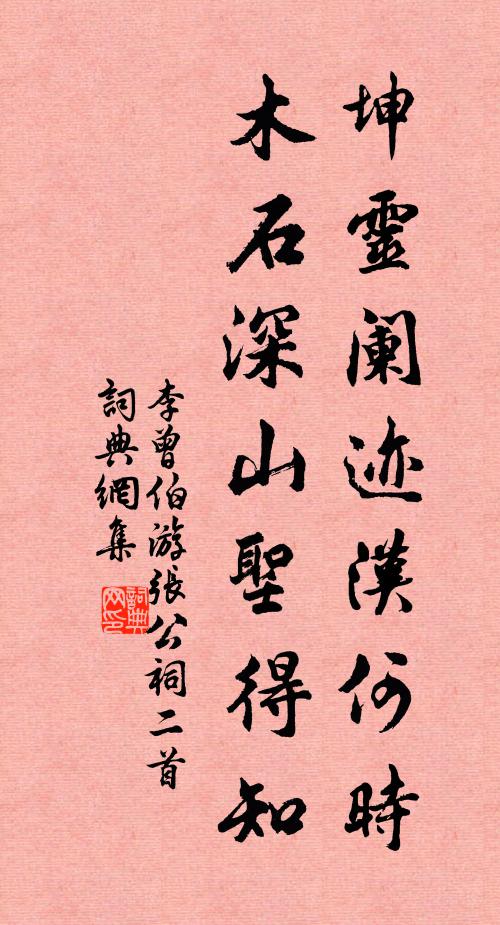 坤靈闌迹漢何時
木石深山聖得知
李曾伯游張公祠二首
詞典網集
詞典網印